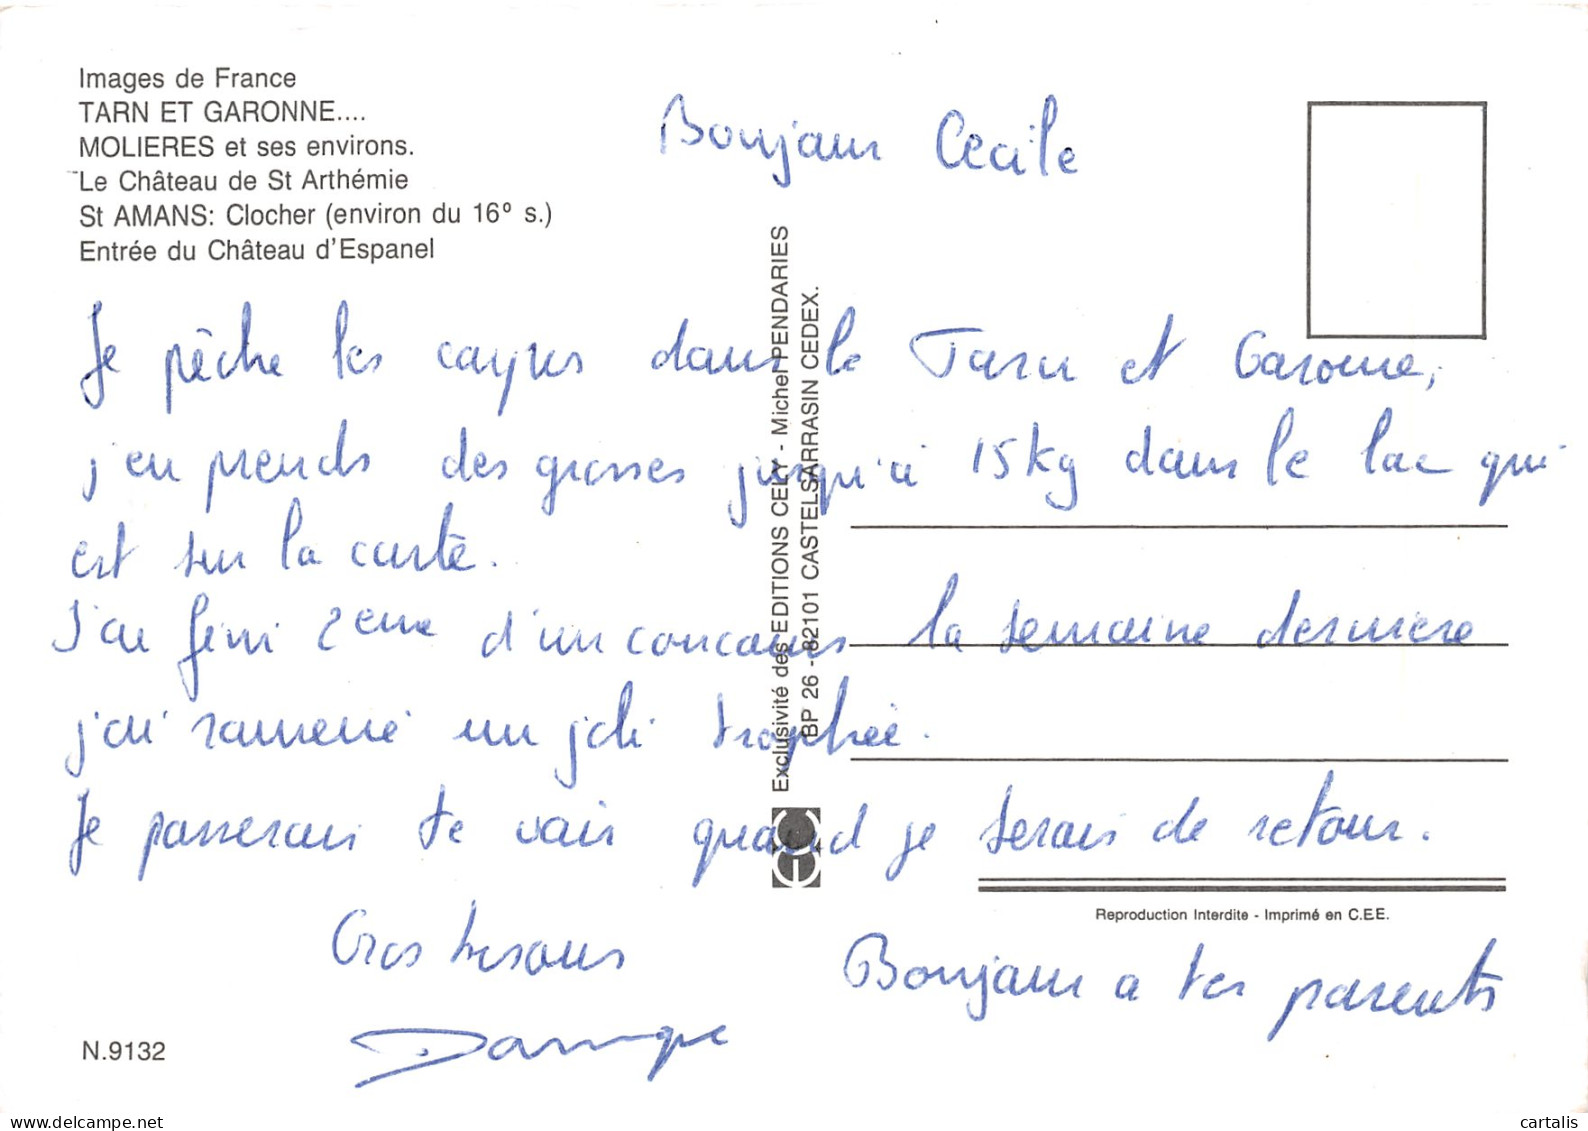 Images de France
TARN ET GARONNE....
MOLIERES et ses environs.
Le Château de St Arthémie
St AMANS: Clocher (environ du 16º s.)
Entrée du Château d'Espanel
Bonjour Cecile
Je pêche les carpes dans le Tarn et Garonne,
j'en prends des grosses jusqu'à 15kg dans le lac qui
est sur la carte.
J'ai fini 2eme d'un concours la semaine derniere
j'ai ramené un joli trophée.
Je passerais te voir quand je serais de retour.
Gros bisous
Bonjour a tes parents
Exclusivité des EDITIONS CELY - Michel PENDARIES
BP 26 - 82101 CASTELSARRASIN CEDEX.
Reproduction Interdite - Imprimé en C.E.E.
N.9132
delcampe.net
cartalis